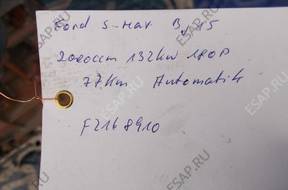 Ford S-Max Bj 15
2000ccm 132kw 180P
77Km Automatik
F2168910
ESPAR.RU
ESPAR.RU
ESPAR.RU
ESPAR.RU